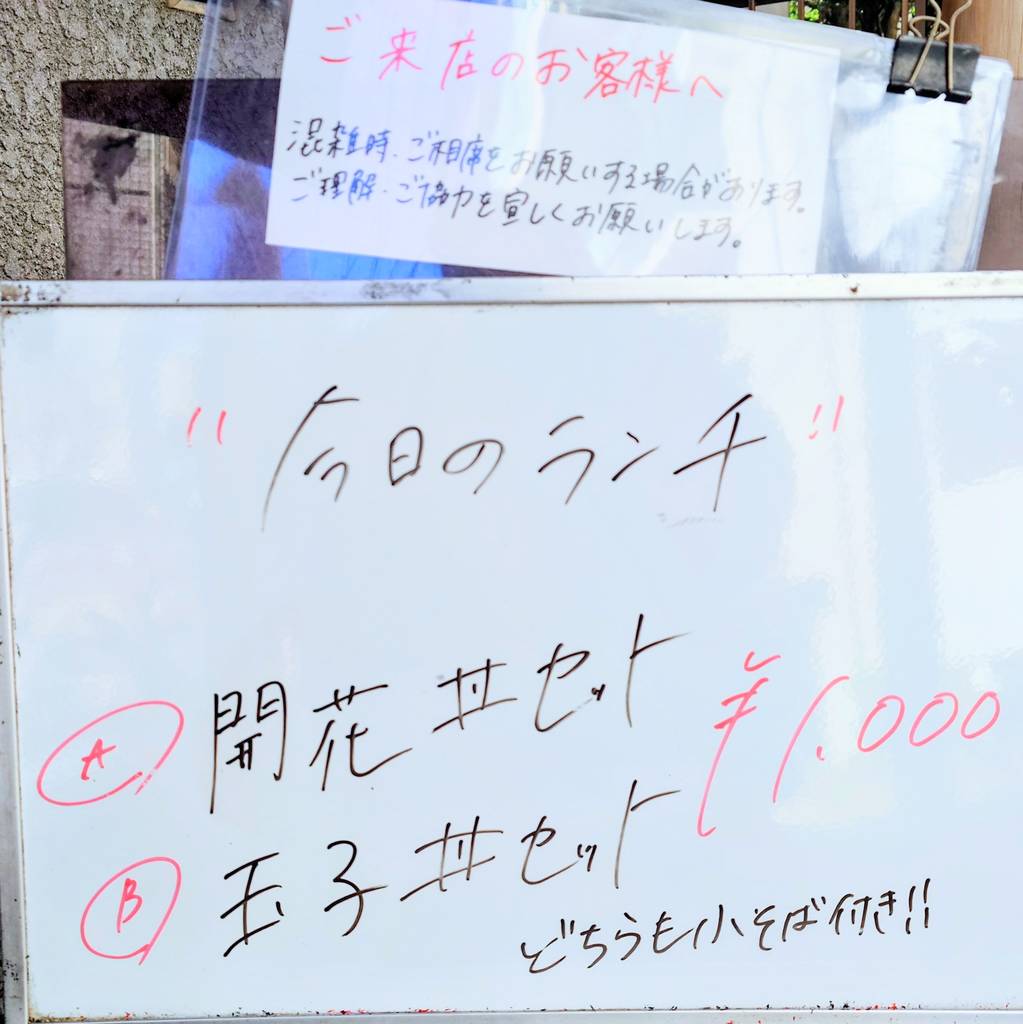 ご来店のお客様へ
混雑時、ご相席をお願いする場合があります。
ご理解・ご協力を宜しくお願いします。
"今日のランチ"
Ⓐ 開花丼セット ¥1,000
Ⓑ 玉子丼セット
どちらも小そば付き!!